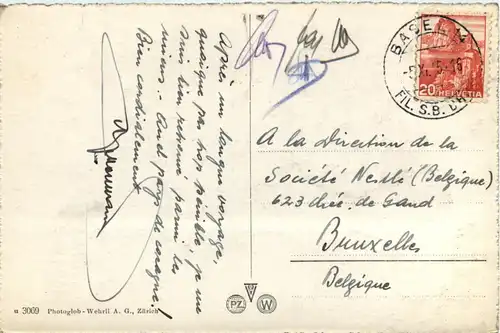 Après un longue voyage,
quoique pas trop pénible je me
suis bien retrouvé parmi les
miens. Quel pays de cocagne!
Bien cordialement
A la Direction de la
Société Nestlé (Belgique)
623 chée. de Gand
Bruxelles
Belgique
BASEL
FIL. S.B.
20 HELVETIA
u 3069 Photoglob-Wehrli A. G., Zürich
PZ W